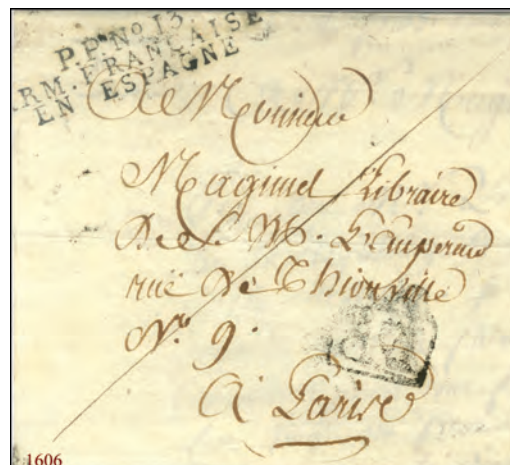 P.P. No 13
ARM. FRANÇAISE
EN ESPAGNE
A Monsieur
Magimel Libraire
de S. M. L'Empereur
rue de Thionville
No. 9.
A Paris
1606